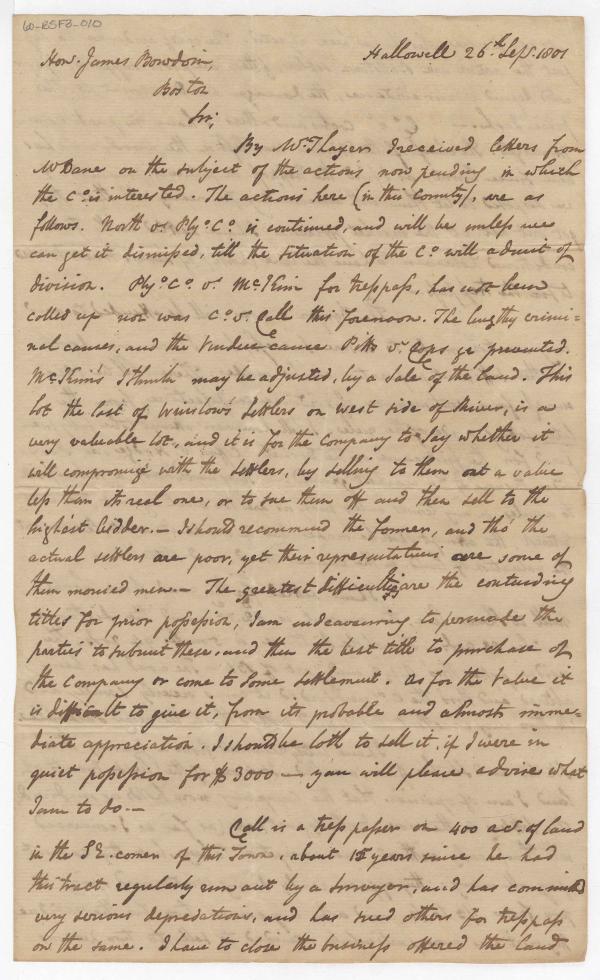 60-RSF8-010
Hallowell 26th Sep. 1801
Hon. James Bowdoin,
Boston
Sir,
By Mr Thayer I received letters from
Mr Dane on the subject of the actions now pending in which
the Co. is interested. The actions here (in this County), are as
follows. North v. Ply. Co. is continued, and will be unless we
can get it dismissed, till the situation of the Co. will admit of
division. Ply. Co. v. McKim for trespass, has not been
called up nor was Co. v. Call this forenoon. The lengthy crimi-
nal causes, and the cause Pitts v. prevented.
McKim's I think may be adjusted, by a Sale of the land. This
lot the last of Winslow's Settlers on west side of River, is a
very valuable lot, and it is for the Company to say whether it
will compromize with the settlers, by selling to them at a value
less than its real one, or to sue them off and then sell to the
highest bidder. — I should recommend the former, and tho' the
actual settlers are poor, yet their representations are some of
them monied men. — The greatest difficulties are the contending
titles for prior possession, I am endeavouring to persuade the
parties to submit these, and then the best title to purchase of
the Company or come to some settlement. As for the Value it
is difficult to give it, from its probable and almost imme-
diate appreciation. I should be loth to sell it, if I were in
quiet possession for $3000 — you will please advise what
I am to do. —
Call is a trespasser on 400 acs. of land
in the SE. corner of this Town, about years since he had
this tract regularly run out by a Surveyor, and has committed
very serious depredations, and has sued others for trespass
on the same. I have to close the business offered the land